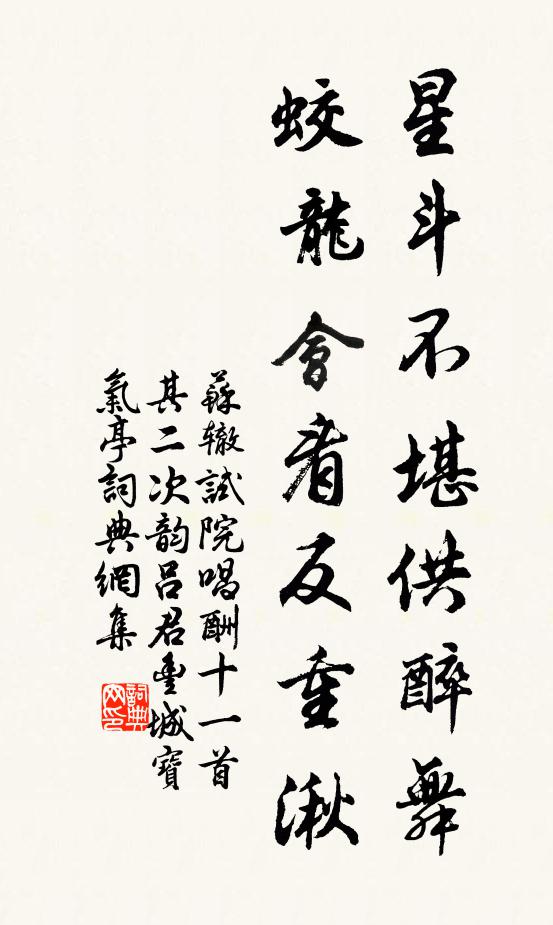 星斗不堪供醉舞
蛟龍會看反重湫
蘇辙試院唱酬十一首
其二次韵吕君豐城寶
氣亭詞典網集
詞典網印